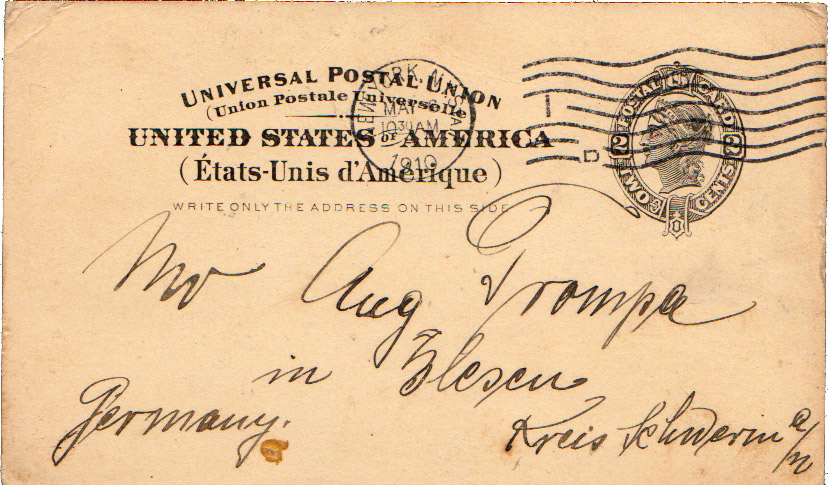 UNIVERSAL POSTAL UNION
(Union Postale Universelle)
UNITED STATES OF AMERICA
(États-Unis d'Amérique)
WRITE ONLY THE ADDRESS ON THIS SIDE
NEW YORK, N.Y. STA
MAY
10 30 AM
1910
D
POSTAL CARD
2 2
TWO CENTS
Mr Aug Trompa
in Blesen
Germany.
Kreis Schwerin a/W